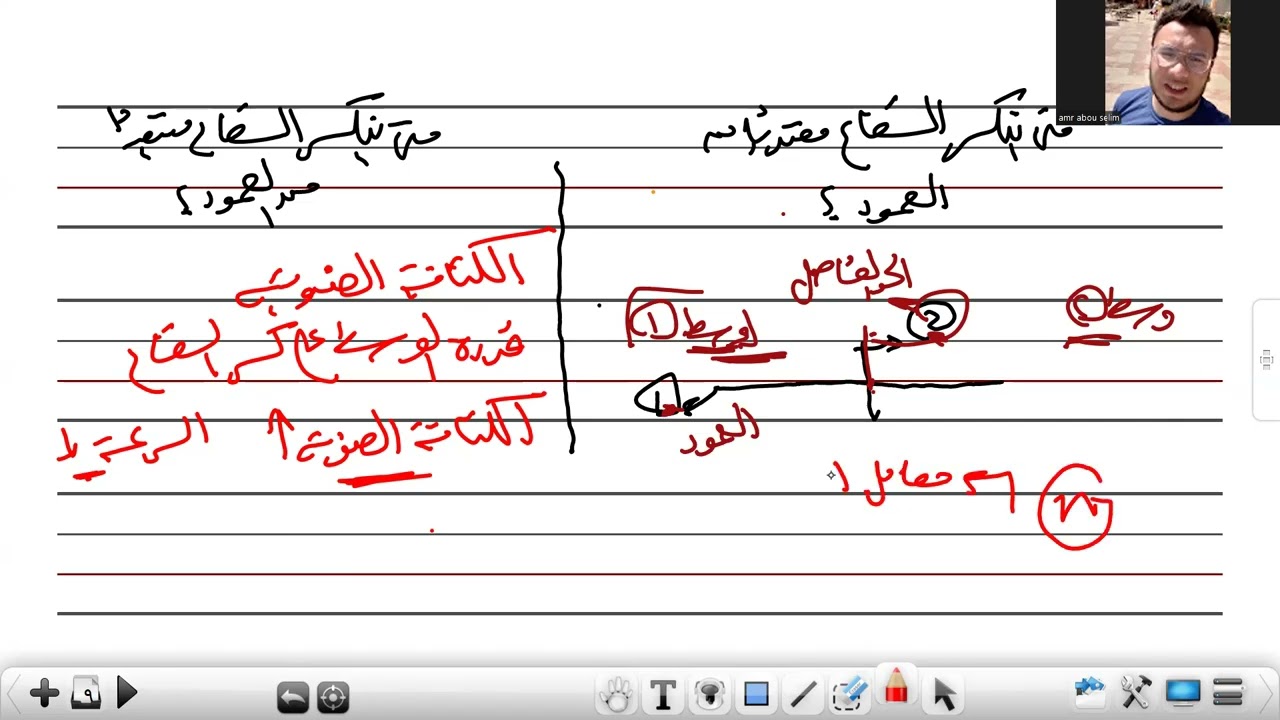 amr abou selim
متى ينكسر الشعاع مقترباً من
العمود ؟
الحد الفاصل
وسط 2
الوسط 1
2
1
العمود
معامل
n
متى ينكسر الشعاع مبتعداً
عن العمود ؟
الكثافة الضوئية
قدرة الوسط على كسر الشعاع
الكثافة الضوئية ↑ السرعة ↓
٩
T